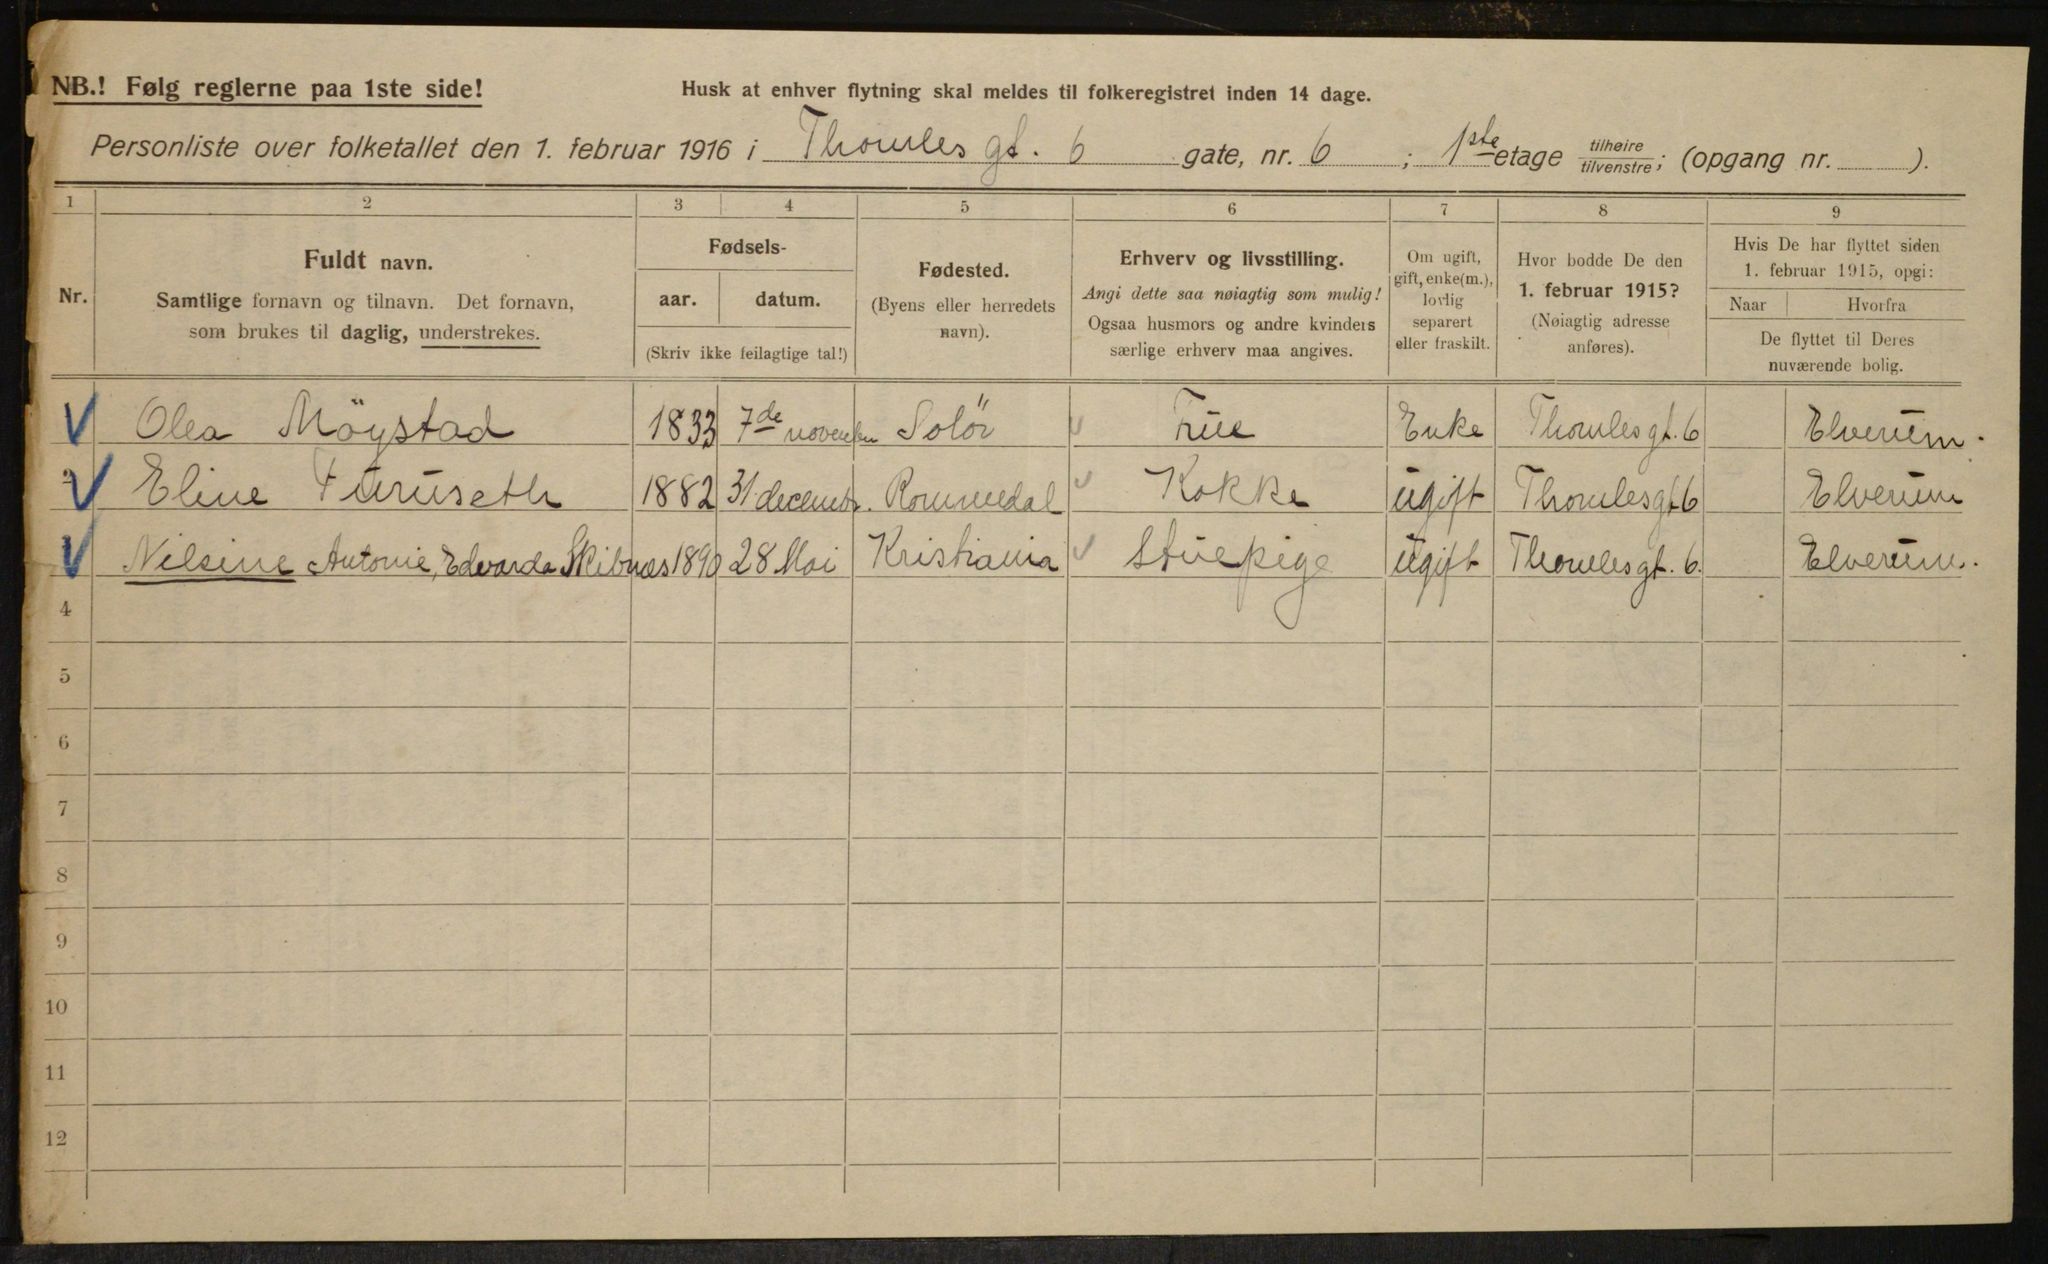 NB.! Følg reglerne paa 1ste side!
Husk at enhver flytning skal meldes til folkeregistret inden 14 dage.
Personliste over folketallet den 1. februar 1916 i Thomles gt. 6 gate, nr. 6 ; 1ste etage tilhøire/tilvenstre; (opgang nr. ).
1 2 3 4 5 6 7 8 9
Nr.
Fuldt navn.
Samtlige fornavn og tilnavn. Det fornavn,
som brukes til daglig, understrekes.
Fødsels-
aar. datum.
(Skriv ikke feilagtige tal!)
Fødested.
(Byens eller herredets
navn).
Erhverv og livsstilling.
Angi dette saa nøiagtig som mulig!
Ogsaa husmors og andre kvinders
særlige erhverv maa angives.
Om ugift,
gift, enke(m.),
lovlig
separert
eller fraskilt.
Hvor bodde De den
1. februar 1915?
(Nøiagtig adresse
anføres).
Hvis De har flyttet siden
1. februar 1915, opgi:
Naar Hvorfra
De flyttet til Deres
nuværende bolig.
Olea Möystad 1833 7de november Solör Frue Enke Thomlesgt. 6 Elverum.
2 Eline Furuseth 1882 31 decemb. Rommedal Kokke ugift Thomlesgt 6 Elverum
Nilsine Antonie, Edvarda Skibnæs 1890 28 Mai Kristiania Stuepige ugift Thomlesgt. 6. Elverum.
4
5
6
7
8
9
10
11
12